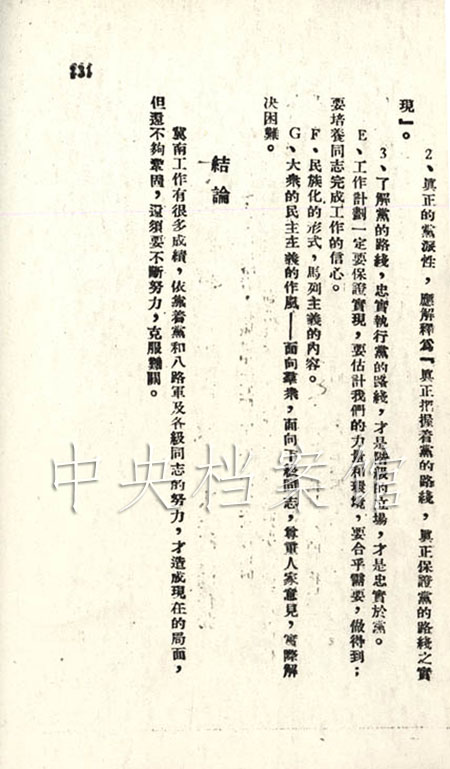 2、眞正的黨派性，應解釋爲『眞正把握着黨的路綫，眞正保證黨的路綫之實
現』。
3、了解黨的路綫，忠實執行黨的路綫，才是階級的立場，才是忠實於黨。
E、工作計劃一定要保證實現，要估計我們的力量和環境，要合乎需要，做得到；
要培養同志完成工作的信心。
F、民族化的形式，馬列主義的內容。
G、大衆的民主主義的作風——面向羣衆，面向下級同志，尊重人家意見，實際解
決困難。
結論
冀南工作有很多成績，依靠着黨和八路軍及各級同志的努力，才造成現在的局面，
但還不夠鞏固，還須要不斷努力，克服難關。
131
中央档案馆